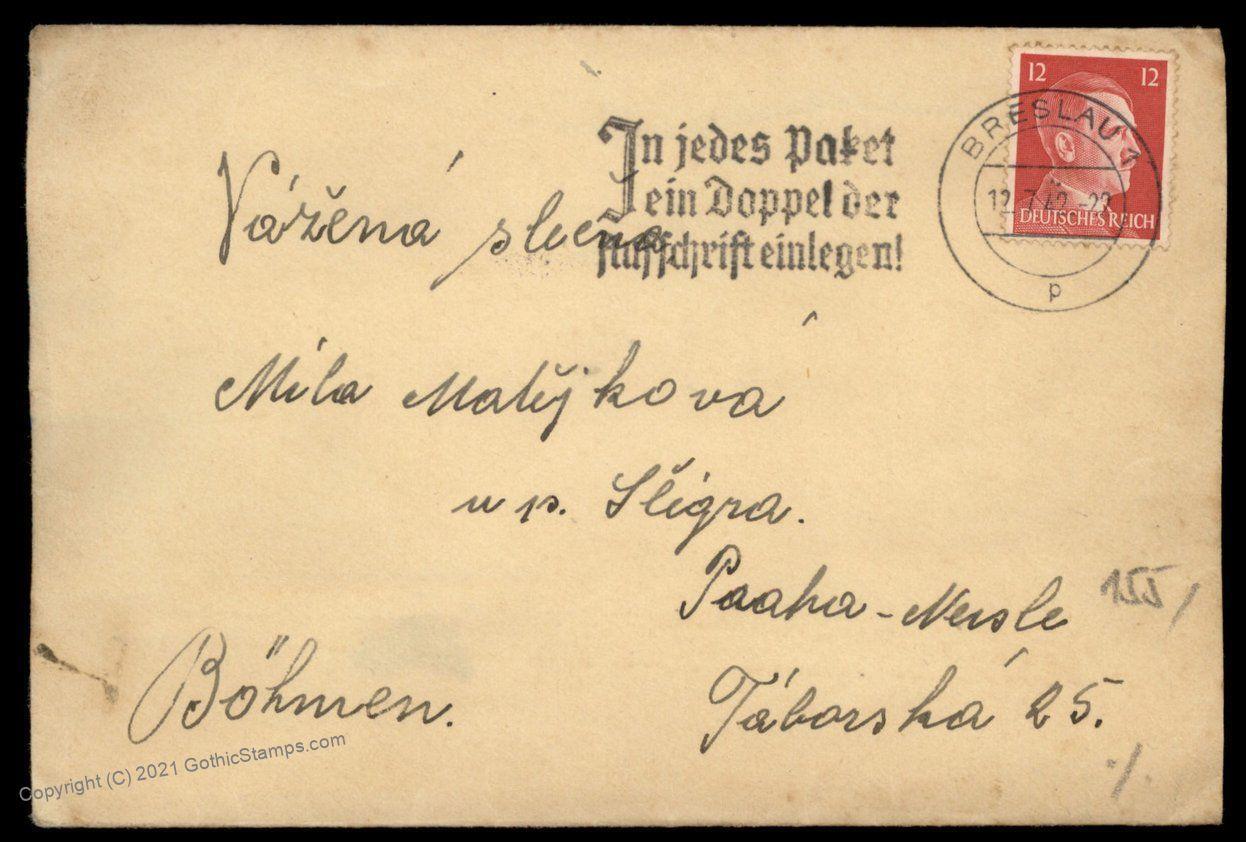 12 12
BRESLAU 1
12.7.42.-20
DEUTSCHES REICH
p
In jedes Paket
ein Doppel der
Aufschrift einlegen!
Vážená slečna
Míla Matějková
u p. Šligra.
Praha-Nusle
155
Böhmen.
Táborská 25.
Copyright (C) 2021 GothicStamps.com